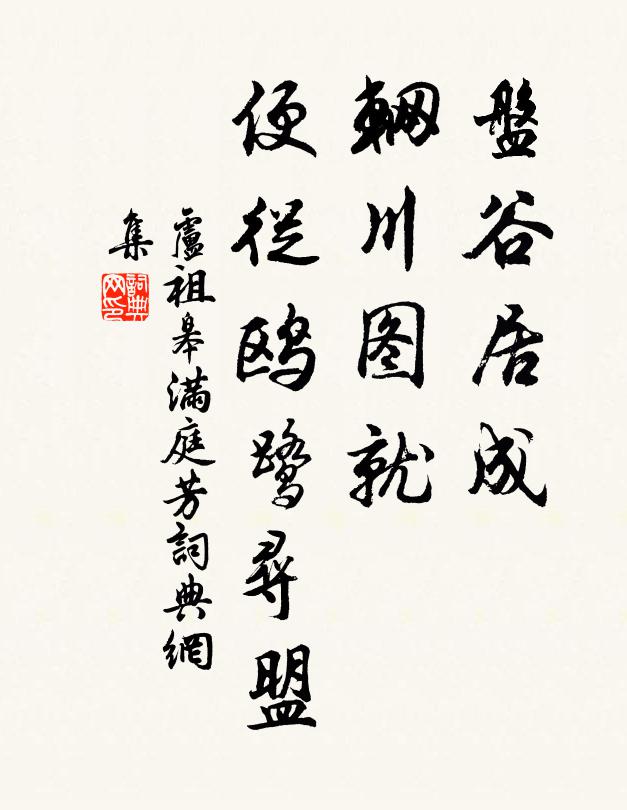 盤谷居成
輞川图就
便從鸥鹭尋盟
盧祖皋滿庭芳詞典網
集
詞典
网印